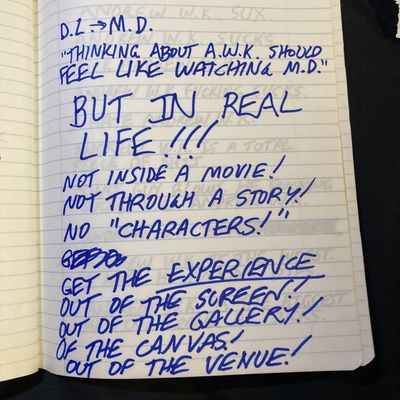 D.L → M.D.
"THINKING ABOUT A.W.K. SHOULD
FEEL LIKE WATCHING M.D."
BUT IN REAL
LIFE!!!
NOT INSIDE A MOVIE!
NOT THROUGH A STORY!
NO "CHARACTERS!"
GET THE EXPERIENCE
OUT OF THE SCREEN!
OUT OF THE GALLERY!
OF THE CANVAS!
OUT OF THE VENUE!